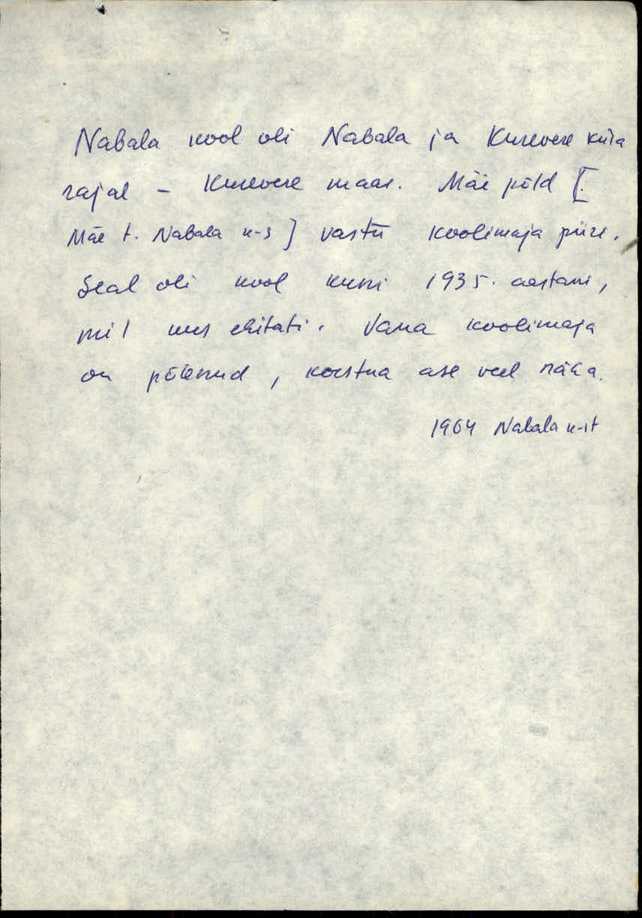 Nabala kool oli Nabala ja Kurevere küla
rajal - Kurevere maas. Mäe põld [.
Mäe t. Nabala k-s] vastu koolimaja piire.
Seal oli kool kuni 1935. aastani,
mil uus ehitati. Vana koolimaja
on põlenud, korstna ase veel näha.
1964 Nabala k-st